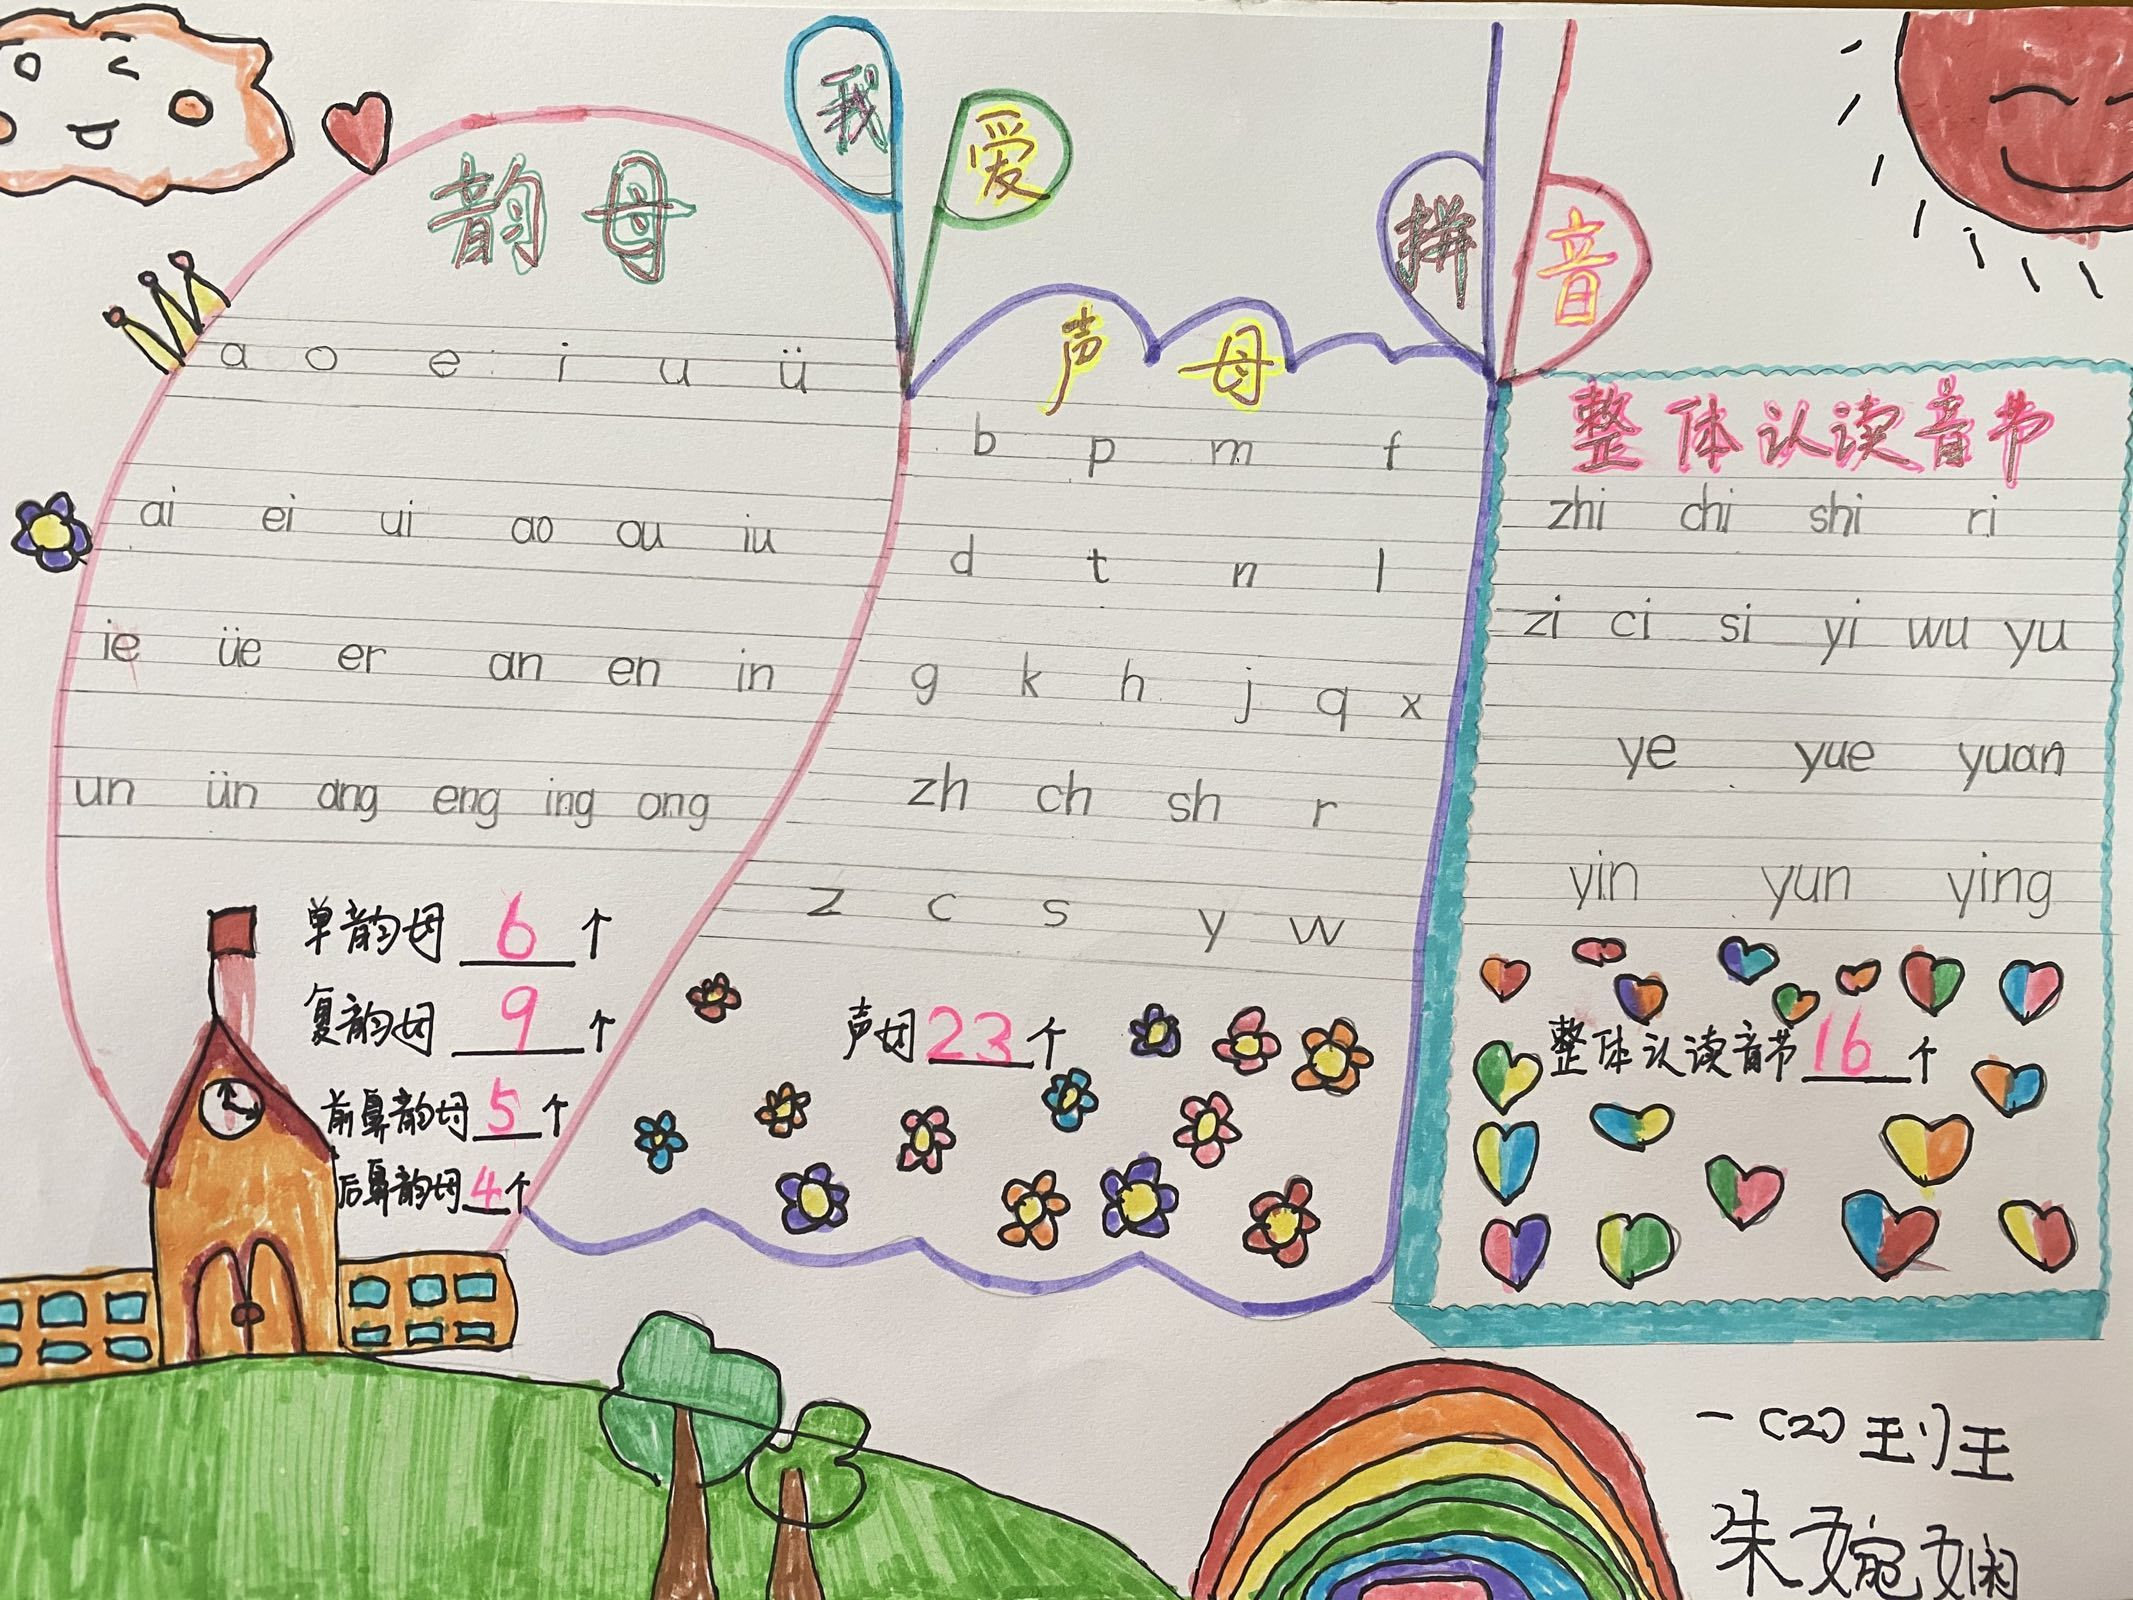 我爱拼音
韵母
a o e i u ü
ai ei ui ao ou iu
ie üe er an en in
un ün ang eng ing ong
单韵母 6 个
复韵母 9 个
前鼻韵母 5 个
后鼻韵母 4 个
声母
b p m f
d t n l
g k h j q x
zh ch sh r
z c s y w
声母 23 个
整体认读音节
zhi chi shi ri
zi ci si yi wu yu
ye yue yuan
yin yun ying
整体认读音节 16 个
一(2)班
朱婉娴